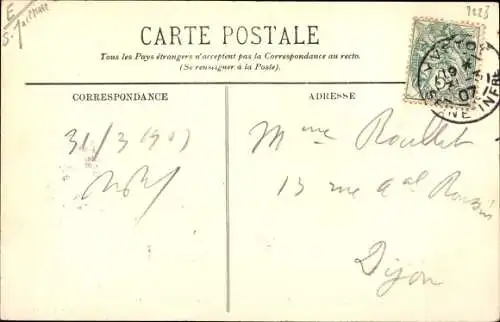 E
S.
1223
CARTE POSTALE
Tous les Pays étrangers n'acceptent pas la Correspondance au recto.
(Se renseigner à la Poste).
CORRESPONDANCE
ADRESSE
YVETOT
SEINE INFRE
07
31/3 1907
Mme Roullet
13 rue Aal Roussin
Dijon